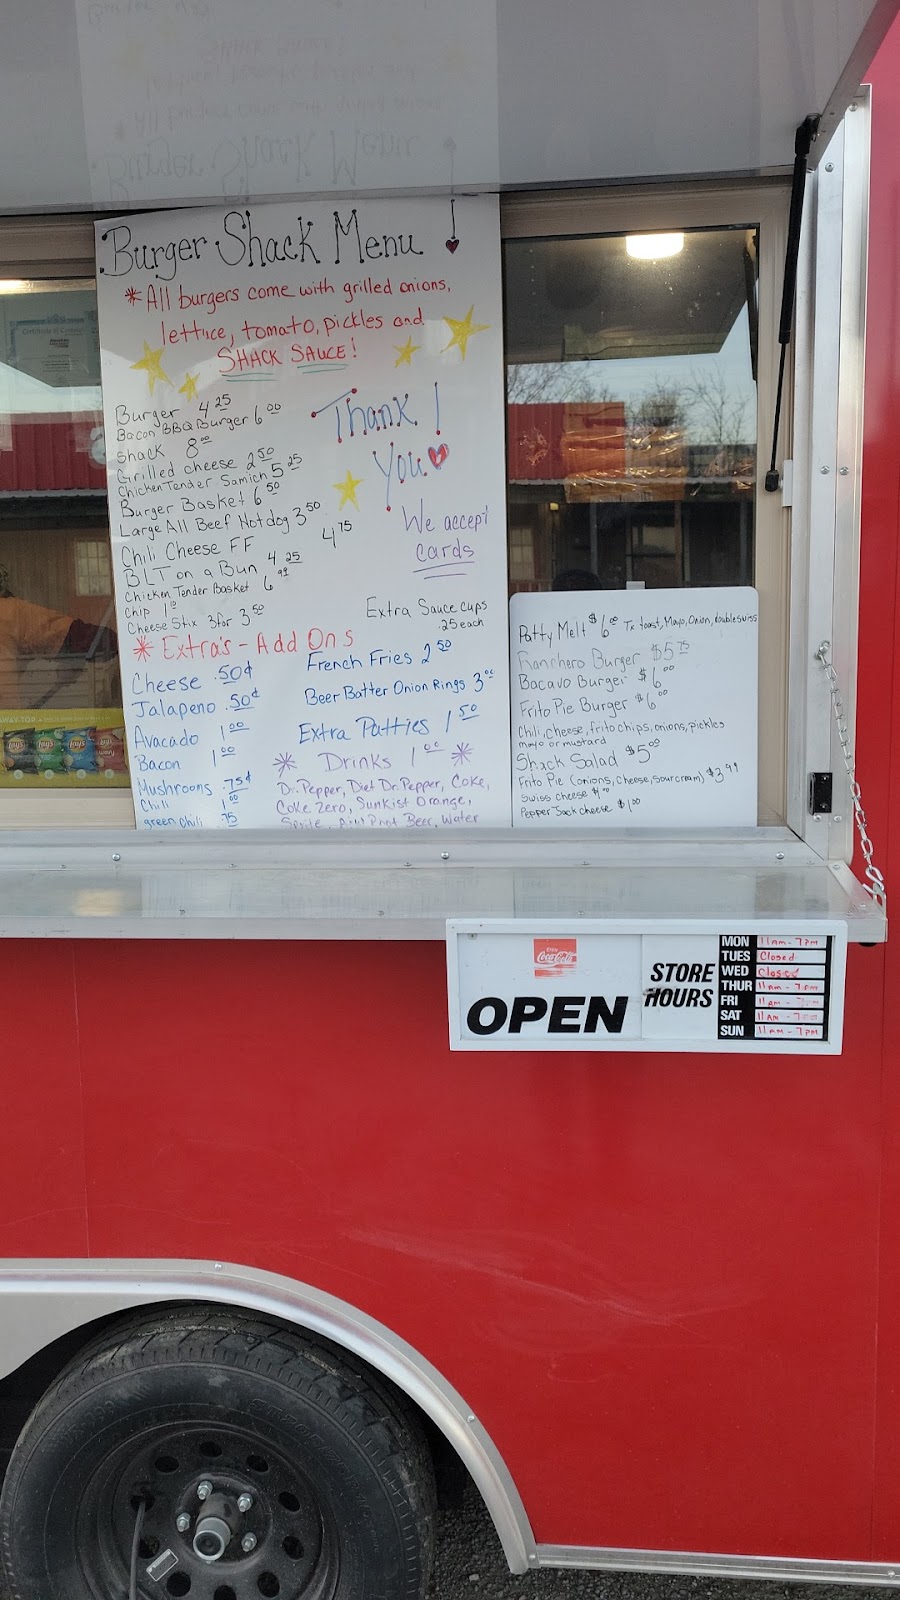 Burger Shack Menu!
*All burgers come with grilled onions,
lettuce, tomato, pickles and
SHACK SAUCE!
Thank
You
We accept
cards
Burger 4 25
Bacon BBQ Burger 6 00
Shack 8 00
Grilled cheese 2 50
Chicken Tender Samich 5 25
Burger Basket 6 50
Large All Beef Hotdog 3 50
Chili Cheese FF 4 75
BLT on a Bun 4 25
Chicken Tender Basket 6 99
Chip 1
Cheese Stix 3 for 3 50
Extra Sauce Cups
.25 each
* Extra's - Add Ons
Cheese .50¢
Jalapeno .50¢
Avacado 1 00
Bacon 1 00
Mushrooms .75¢
Chili 1 00
green chili .75
French Fries 2 50
Beer Batter Onion Rings 3 00
Extra Patties 1 50
* Drinks 1 00 *
Dr. Pepper, Diet Dr. Pepper, Coke,
Coke Zero, Sunkist Orange,
Sprite, A&W Root Beer, Water
Patty Melt $6 00 Tx toast, Mayo, Onion, double swiss
Ranchero Burger $5 75
Bacavo Burger $6 00
Frito Pie Burger $6 00
Chili, cheese, frito chips, onions, pickles
mayo or mustard
Shack Salad $5 00
Frito Pie (onions, cheese, sour cream) $3 99
Swiss cheese $1 00
Pepper Jack cheese $1 00
Coca-Cola
OPEN
STORE
HOURS
MON 11am - 7pm
TUES Closed
WED Closed
THUR 11am - 7pm
FRI 11am - 7pm
SAT 11am - 7pm
SUN 11am - 7pm